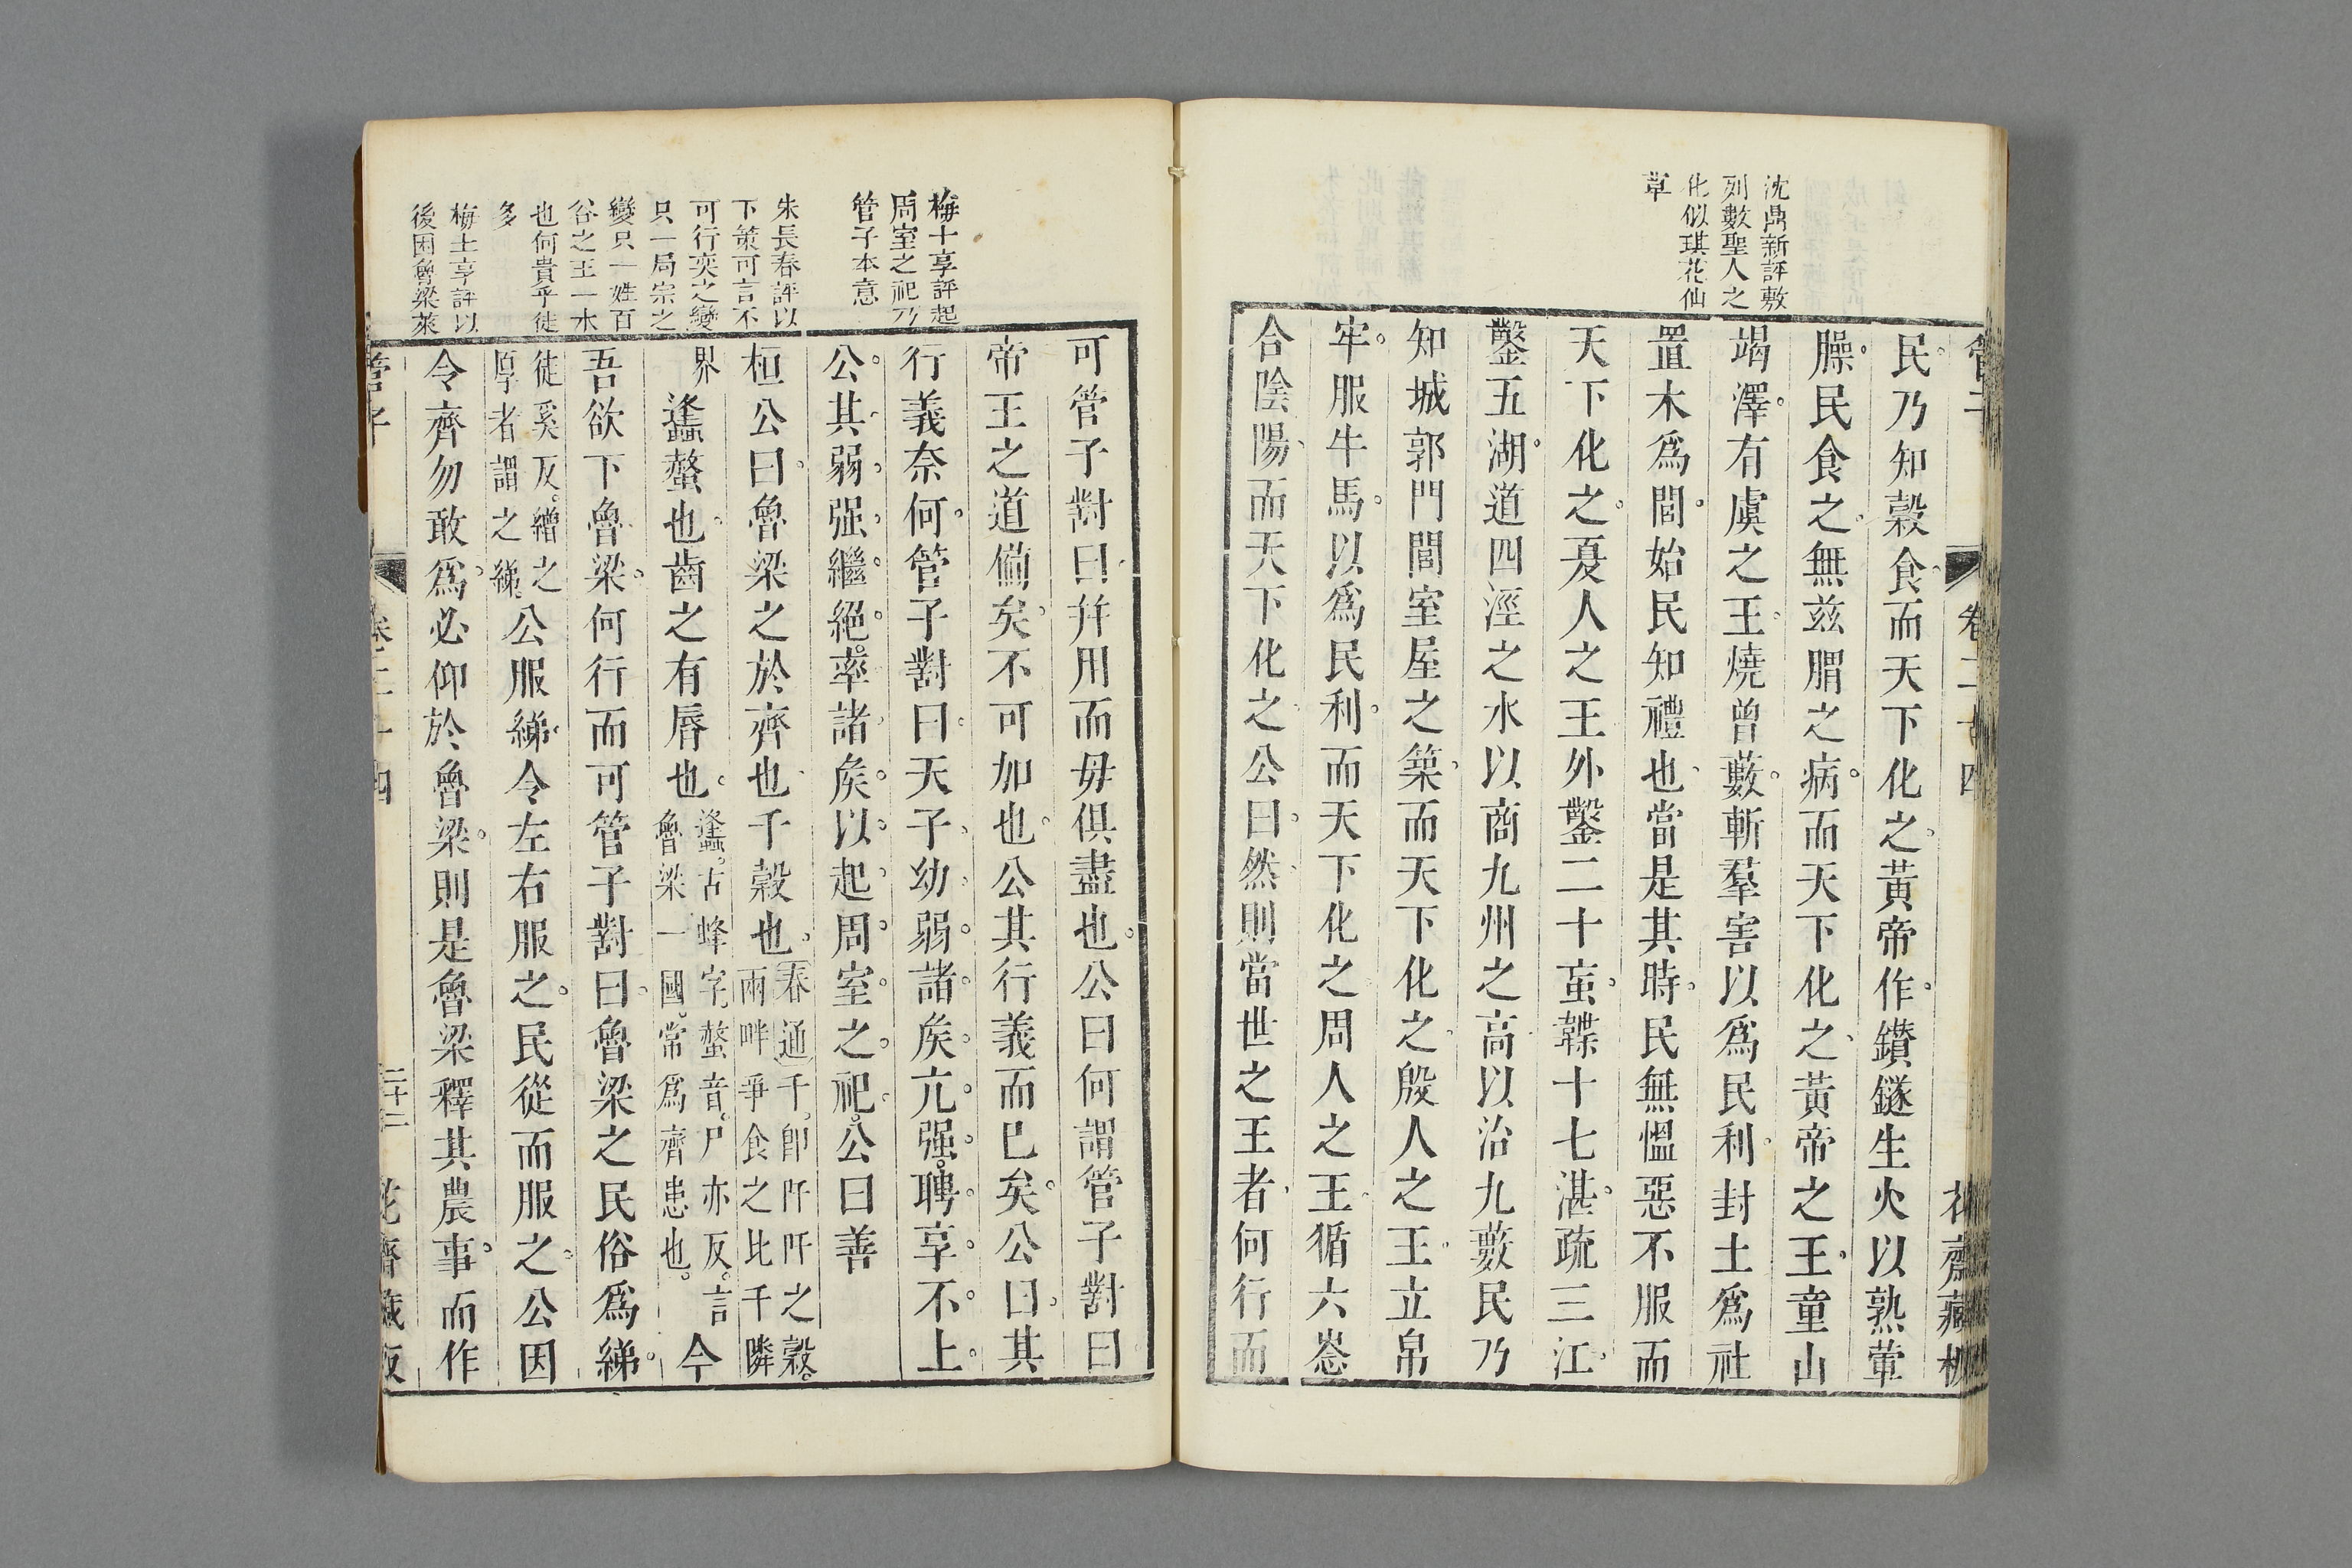 沈鼎新評敷
列數聖人之
化似琪花仙
草
民乃知榖食而天下化之黃帝作鑽鐩生火以熟葷
臊民食之無兹䐜之病而天下化之黃帝之王童山
竭澤有虞之王燒曾藪斬羣害以爲民利封土爲社
置木爲閭始民知禮也當是其時民無慍惡不服而
天下化之夏人之王外鑿二十䖟韘十七湛疏三江
鑿五湖道四涇之水以商九州之高以治九藪民乃
知城郭門閭室屋之築而天下化之殷人之王立帛
牢服牛馬以爲民利而天下化之周人之王循六惢
合陰陽而天下化之公曰然則當世之王者何行而
梅士享評起
周室之祀乃
管子本意
朱長春評以
下策可言不
可行奕之變
只一局宗之
變只一姓百
谷之王一水
也何貴乎徒
多
梅士享評以
後困魯梁萊
可管子對曰幷用而毋俱盡也公曰何謂管子對曰
帝王之道備矣不可加也公其行義而巳矣公曰其
行義奈何管子對曰天子幼弱諸矦亢强聘享不上
公其弱强繼絕率諸矦以起周室之祀公曰善
桓公曰魯梁之於齊也千榖也春通千卽阡阡之榖
兩畔爭食之比千隣
界䗬螫也齒之有脣也䗬古蜂字螫音尸亦反言
魯梁一國常爲齊患也今
吾欲下魯梁何行而可管子對曰魯梁之民俗爲綈
徒奚反繒之
厚者謂之綈公服綈令左右服之民從而服之公因
令齊勿敢爲必仰於魯梁則是魯梁釋其農事而作
管子
卷二十四
二十二
花齋藏板